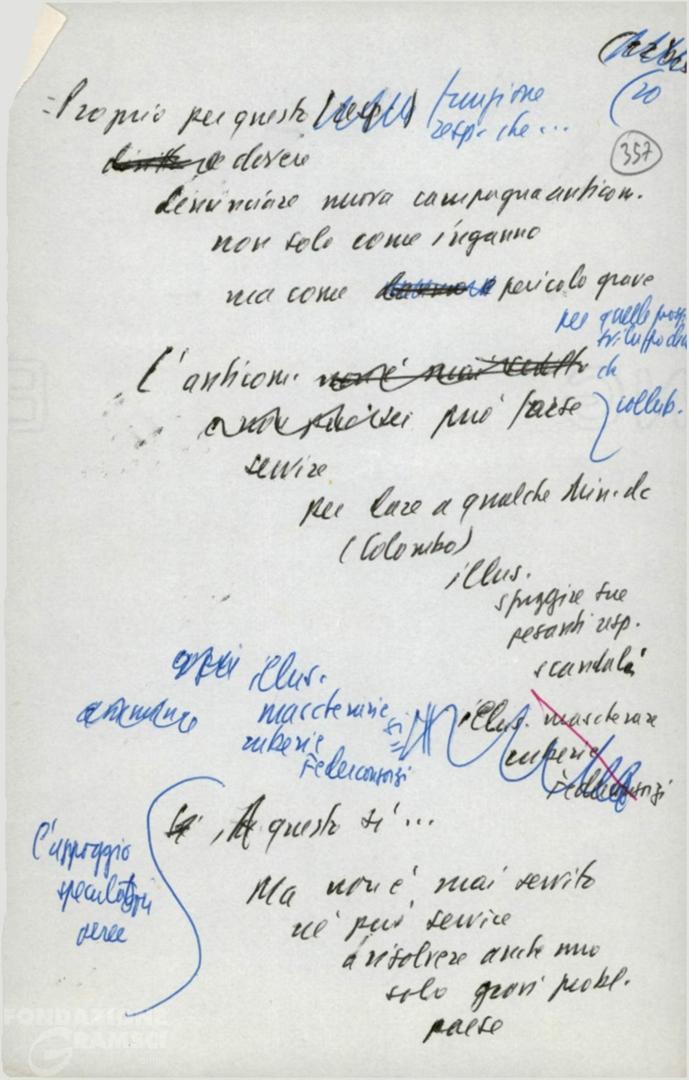 (20
357
- Proprio per questo (resp.) funzione
resp. che...
e dovere
denunciare nuova campagna anticom.
non solo come inganno
ma come pericolo grave
per quelle prosp.
sviluppo
L'anticom.
può forse
collab.
servire
per dare a qualche Min. dc
(Colombo)
illus.
sfuggire sue
pesanti resp.
scandali
illus.
mascherare
ruberie
Federconsorzi
illus. mascherare
ruberie
Federconsorzi
A questo sì...
l'appoggio
speculatori
aree
Ma non è mai servito
nè può servire
a risolvere anche uno
solo gravi probl.
paese
FONDAZIONE
GRAMSCI